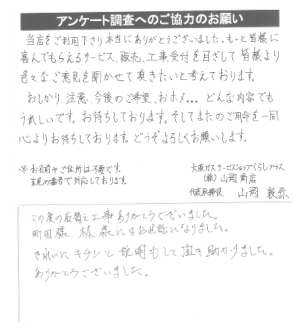 アンケート調査へのご協力のお願い
当店をご利用下さり本当にありがとうございました。もっと皆様に
喜んでもらえるサービス、販売、工事受付を目ざして皆様より
色々なご意見を聞かせて頂きたいと考えております。
おしかり、注意、今後のご希望、おホメ... どんな内容でも
うれしいです。お待ちしております。そしてまたのご用命を一同
心よりお待ちしております。どうぞよろしくお願いします。
※お名前やご住所は不要です。
大阪ガスサービスショップくらしプラス
(株)山岡商店
代表取締役 山岡
この度の取替え工事ありがとうございました。
町田様、林様にはお世話になりました。
きれいに キチンと 説明もして頂き助かりました。
ありがとうございました。